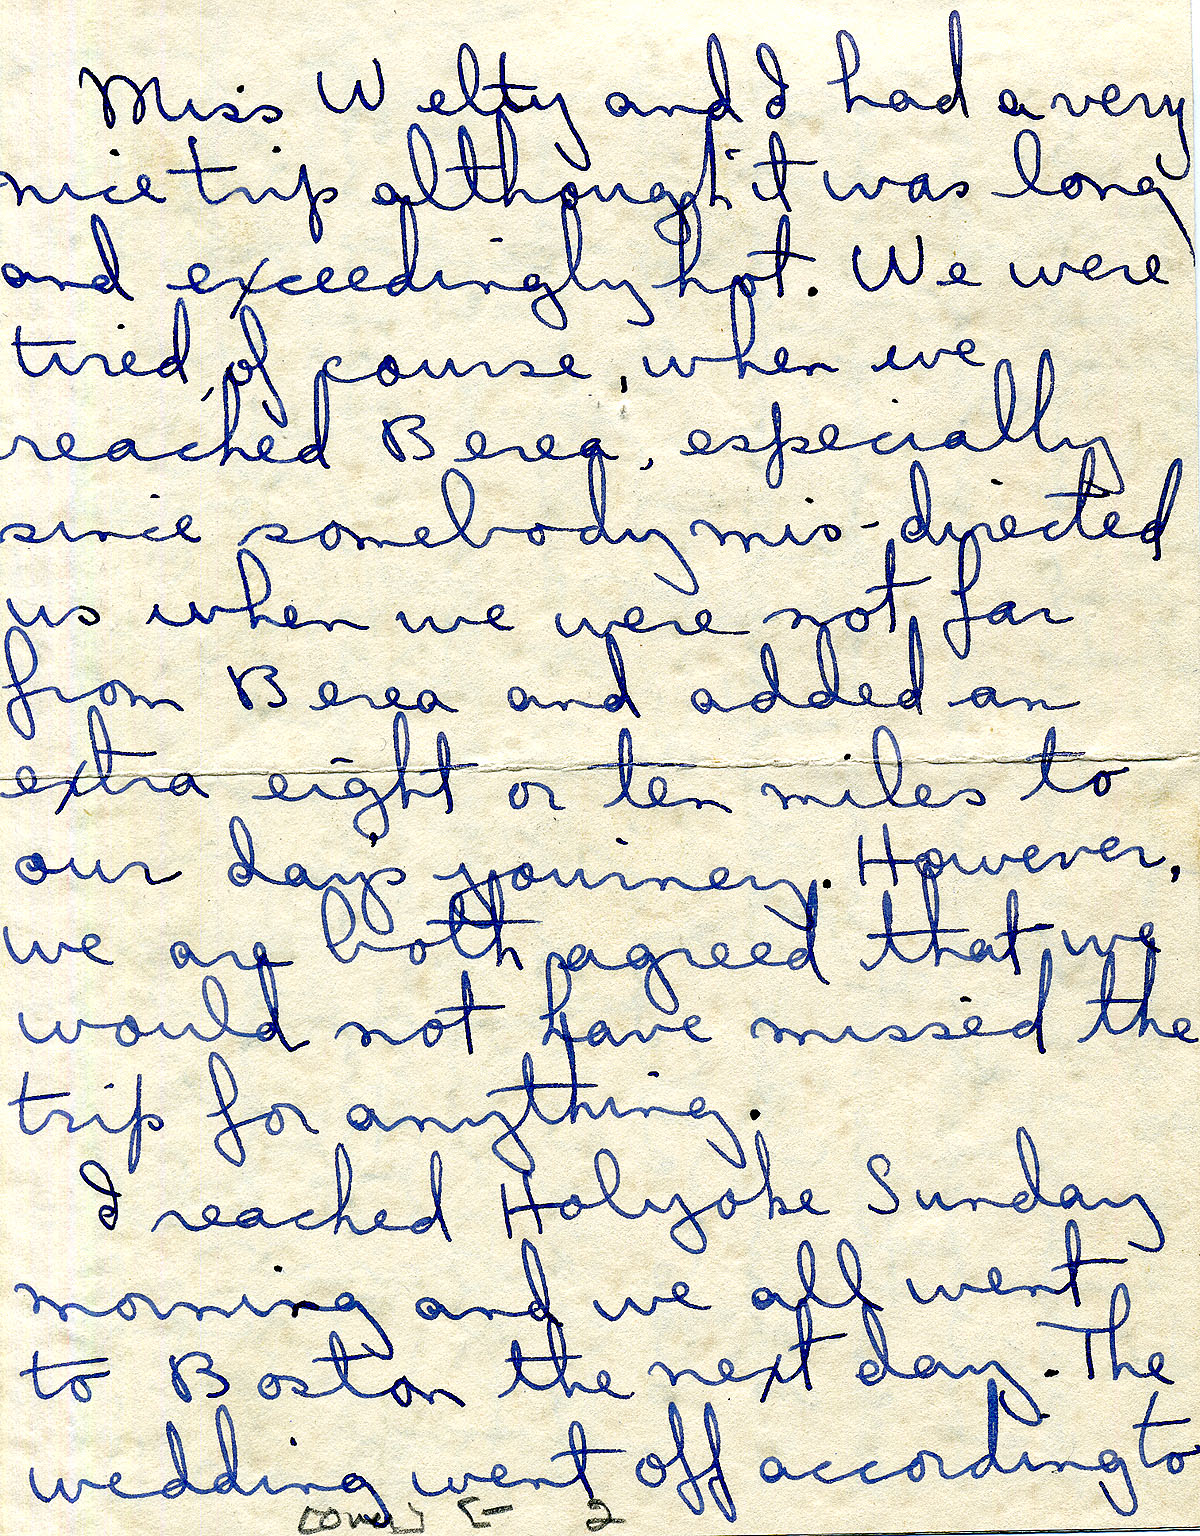 Miss Welty and I had a very
nice trip although it was long
and exceedingly hot. We were
tired, of course, when we
reached Berea, especially
since somebody mis-directed
us when we were not far
from Berea and added an
extra eight or ten miles to
our day's journey. However,
we are both agreed that we
would not have missed the
trip for anything.
I reached Holyoke Sunday
morning and we all went
to Boston the next day. The
wedding went off according to
2